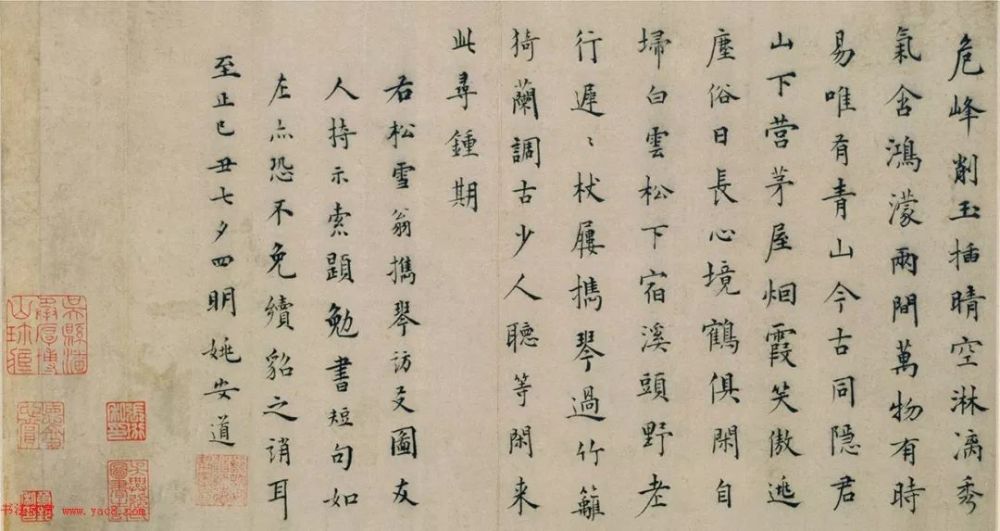 危峰削玉插晴空淋漓秀
氣含鴻濛兩間萬物有時
易唯有青山今古同隱君
山下营茅屋烟霞笑傲逃
塵俗日長心境鶴俱閑自
埽白雲松下宿溪頭野老
行遲〻杖屨携琴過竹籬
猗蘭調古少人聽等閑来
此尋鍾期
右松雪翁携琴訪友圖友
人持示索題勉書短句如
左亦恐不免續貂之誚耳
至正己丑七夕四明姚安道
www.yac8.com